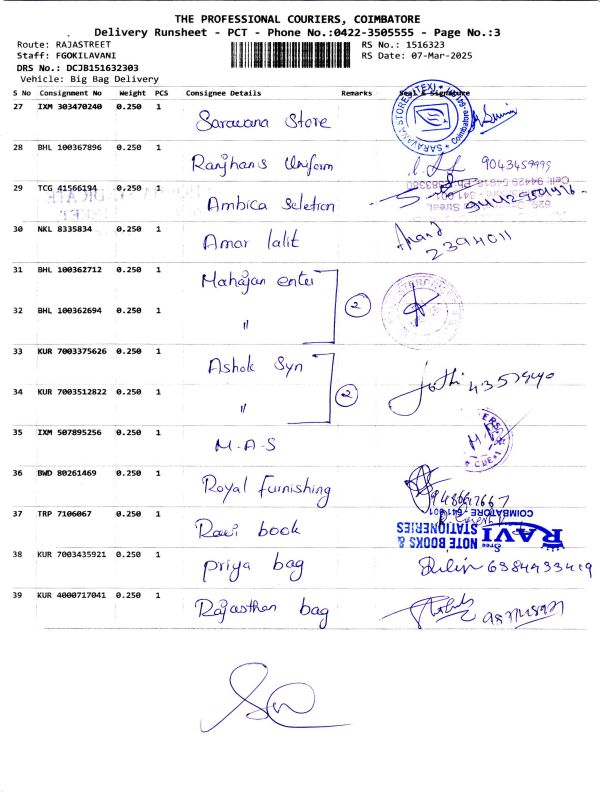 THE PROFESSIONAL COURIERS, COIMBATORE
Delivery Runsheet - PCT - Phone No.:0422-3505555 - Page No.:3
Route: RAJASTREET RS No.: 1516323
Staff: FGOKILAVANI RS Date: 07-Mar-2025
DRS No.: DCJB151632303
Vehicle: Big Bag Delivery
S No Consignment No Weight PCS Consignee Details Remarks Seal & Signature
27 IXM 303470240 0.250 1 Saravana Store
28 BHL 100367896 0.250 1 Ranjhanis Uniform 9043459995
29 TCG 41566194 0.250 1 Ambica Seletion
30 NKL 8335834 0.250 1 Amar lalit Anand
2394011
31 BHL 100362712 0.250 1 Mahajan enter
32 BHL 100362694 0.250 1 " 2
33 KUR 7003375626 0.250 1 Ashok Syn
34 KUR 7003512822 0.250 1 " 2 Jothi
35 IXM 507895256 0.250 1 M.A.S
36 BWD 80261469 0.250 1 Royal Furnishing
37 TRP 7106067 0.250 1 Ravi book
COIMBATORE - 641 001
Sree RAVI NOTE BOOKS & STATIONERIES
38 KUR 7003435921 0.250 1 Priya bag 6384933419
39 KUR 4000717041 0.250 1 Rajasthan bag